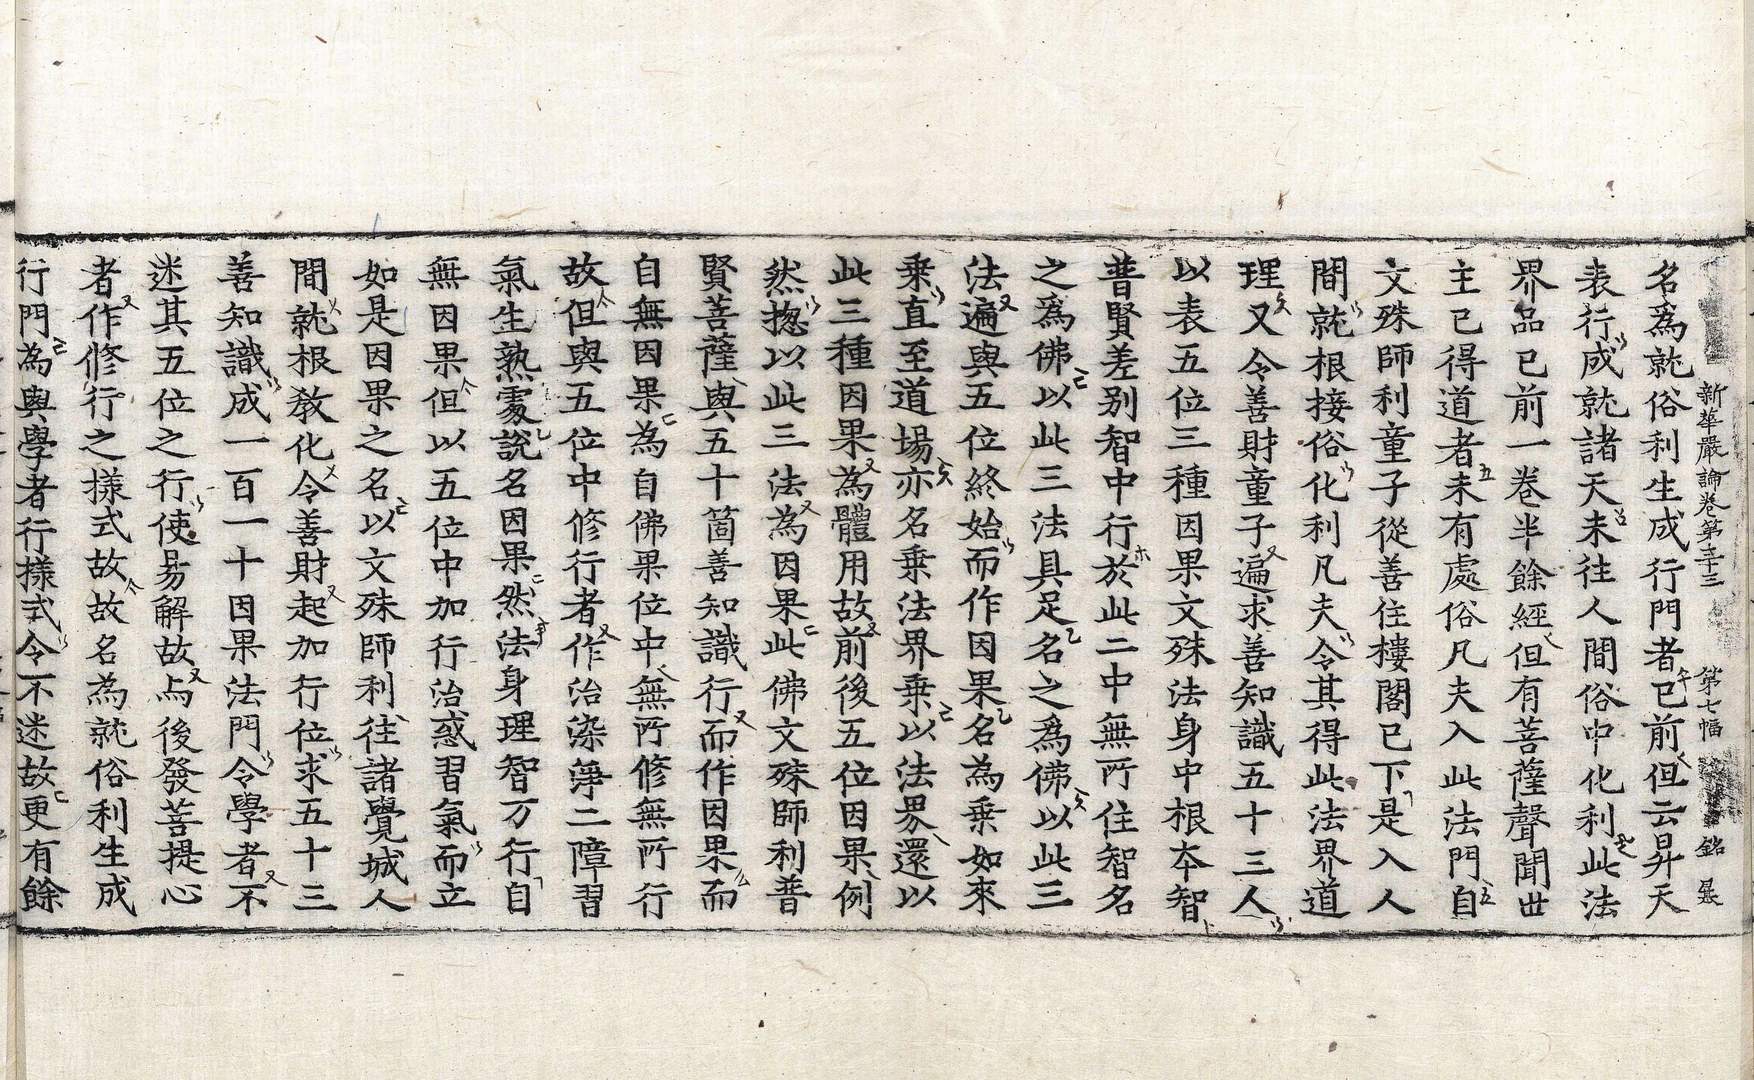 新華嚴論卷第三十三　第七幅　銘　晟
名爲就俗利生成行門者已前但云昇天
表行成就諸天未往人間俗中化利此法
界品已前一卷半餘經但有菩薩聲聞世
主已得道者未有處俗凡夫入此法門自
文殊師利童子從善住樓閣已下是入人
間就根接俗化利凡夫令其得此法界道
理又令善財童子遍求善知識五十三人
以表五位三種因果文殊法身中根本智
普賢差別智中行於此二中無所住智名
之爲佛以此三法具足名之爲佛以此三
法遍與五位終始而作因果名為乗如來
乗直至道場亦名乗法界乗以法界還以
此三種因果為體用故前後五位因果例
然揔以此三法為因果此佛文殊師利普
賢菩薩與五十箇善知識行而作因果而
自無因果為自佛果位中無所修無所行
故但與五位中修行者作治染淨二障習
氣生熟處說名因果然法身理智万行自
無因果但以五位中加行治惑習氣而立
如是因果之名以文殊師利往諸覺城人
間就根教化令善財起加行位求五十三
善知識成一百一十因果法門令學者不
迷其五位之行使易解故与後發菩提心
者作修行之樣式故故名為就俗利生成
行門為與學者行樣式令不迷故更有餘